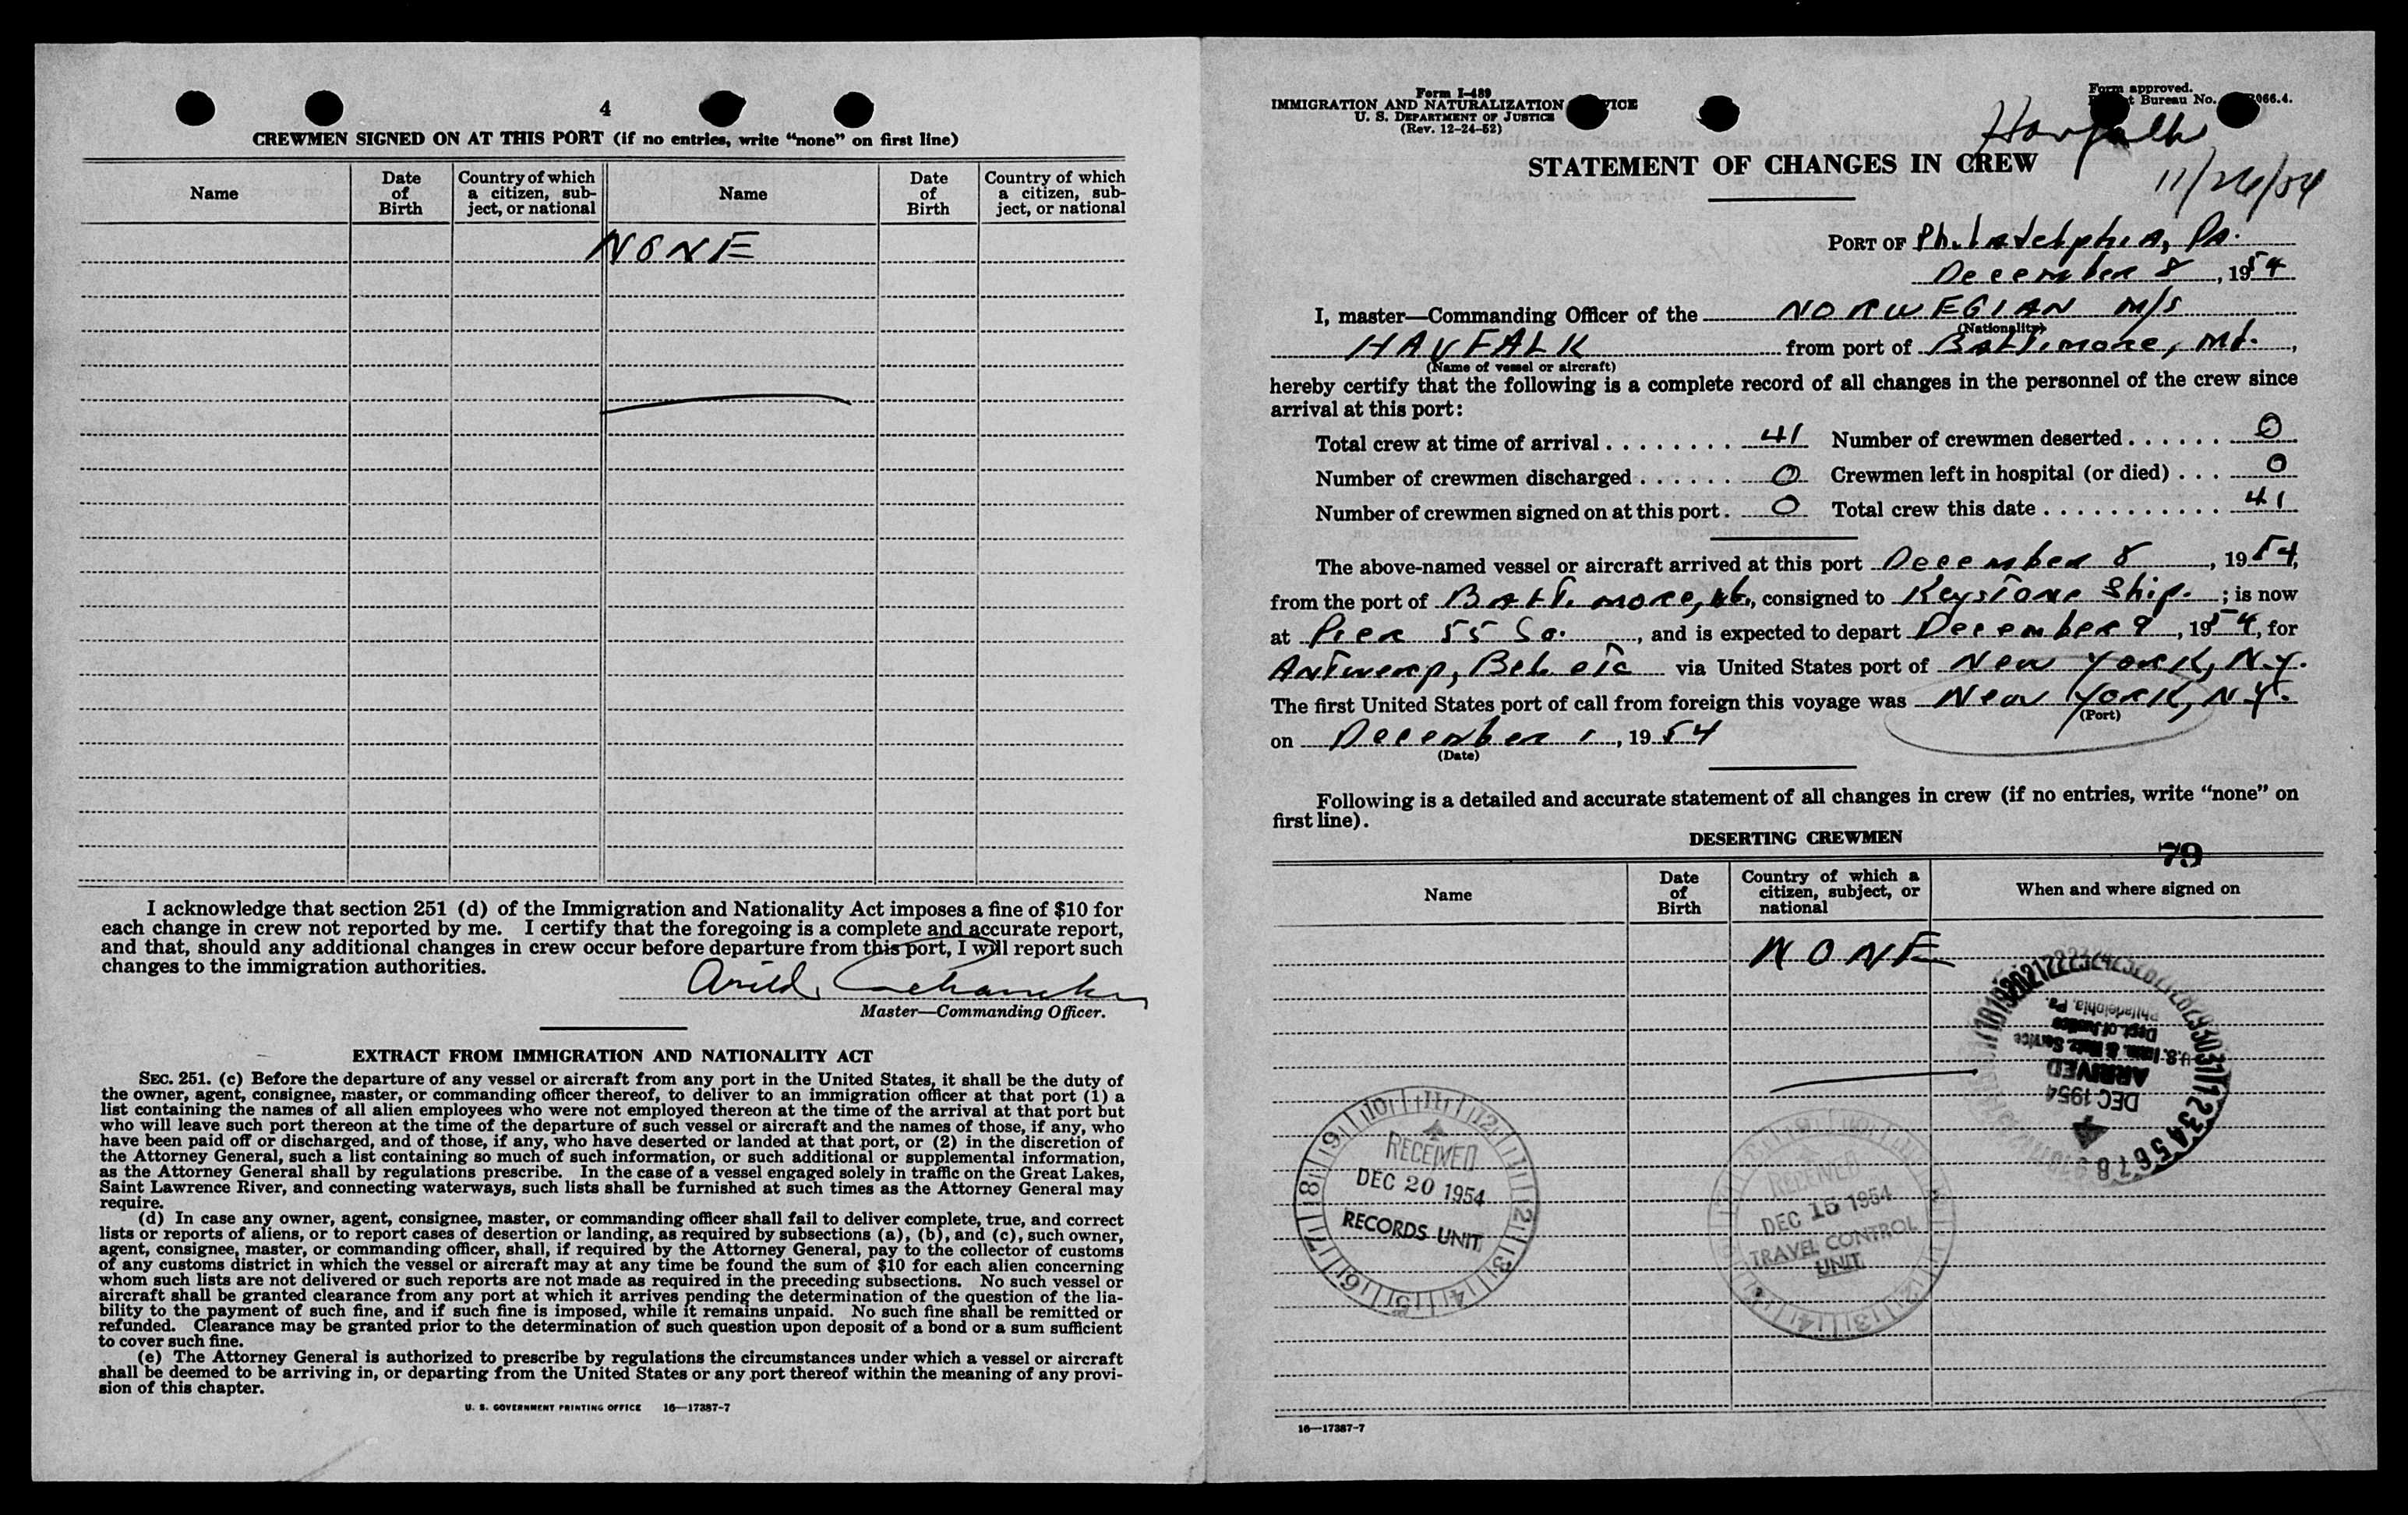 4
CREWMEN SIGNED ON AT THIS PORT (if no entries, write "none" on first line)
Name
Date of Birth
Country of which a citizen, subject, or national
Name
Date of Birth
Country of which a citizen, subject, or national
NONE
I acknowledge that section 251 (d) of the Immigration and Nationality Act imposes a fine of $10 for
each change in crew not reported by me. I certify that the foregoing is a complete and accurate report,
and that, should any additional changes in crew occur before departure from this port, I will report such
changes to the immigration authorities.
Master—Commanding Officer.
EXTRACT FROM IMMIGRATION AND NATIONALITY ACT
SEC. 251. (c) Before the departure of any vessel or aircraft from any port in the United States, it shall be the duty of
the owner, agent, consignee, master, or commanding officer thereof, to deliver to an immigration officer at that port (1) a
list containing the names of all alien employees who were not employed thereon at the time of the arrival at that port but
who will leave such port thereon at the time of the departure of such vessel or aircraft and the names of those, if any, who
have been paid off or discharged, and of those, if any, who have deserted or landed at that port, or (2) in the discretion of
the Attorney General, such a list containing so much of such information, or such additional or supplemental information,
as the Attorney General shall by regulations prescribe. In the case of a vessel engaged solely in traffic on the Great Lakes,
Saint Lawrence River, and connecting waterways, such lists shall be furnished at such times as the Attorney General may
require.
(d) In case any owner, agent, consignee, master, or commanding officer shall fail to deliver complete, true, and correct
lists or reports of aliens, or to report cases of desertion or landing, as required by subsections (a), (b), and (c), such owner,
agent, consignee, master, or commanding officer, shall, if required by the Attorney General, pay to the collector of customs
of any customs district in which the vessel or aircraft may at any time be found the sum of $10 for each alien concerning
whom such lists are not delivered or such reports are not made as required in the preceding subsections. No such vessel or
aircraft shall be granted clearance from any port at which it arrives pending the determination of the question of the lia-
bility to the payment of such fine, and if such fine is imposed, while it remains unpaid. No such fine shall be remitted or
refunded. Clearance may be granted prior to the determination of such question upon deposit of a bond or a sum sufficient
to cover such fine.
(e) The Attorney General is authorized to prescribe by regulations the circumstances under which a vessel or aircraft
shall be deemed to be arriving in, or departing from the United States or any port thereof within the meaning of any provi-
sion of this chapter.
U. S. GOVERNMENT PRINTING OFFICE 16—17387-7
Form I-489
IMMIGRATION AND NATURALIZATION
U. S. DEPARTMENT OF JUSTICE
(Rev. 12-24-52)
Form approved.
Bureau No.
11/26/54
STATEMENT OF CHANGES IN CREW
PORT OF Philadelphia, Pa.
December 8, 1954
I, master—Commanding Officer of the NORWEGIAN M/S
(Nationality)
HAVFALK from port of Baltimore, Md.,
(Name of vessel or aircraft)
hereby certify that the following is a complete record of all changes in the personnel of the crew since
arrival at this port:
Total crew at time of arrival . . . . . . . . 41 Number of crewmen deserted . . . . . . 0
Number of crewmen discharged . . . . . . 0 Crewmen left in hospital (or died) . . . 0
Number of crewmen signed on at this port . 0 Total crew this date . . . . . . . . . . . 41
The above-named vessel or aircraft arrived at this port December 8, 1954,
from the port of Baltimore, Md., consigned to Keystone Ship. ; is now
at Pier 55 So., and is expected to depart December 9, 1954, for
Antwerp, Bel. etc via United States port of New York, N.Y.
The first United States port of call from foreign this voyage was New York, N.Y.
(Port)
on December 1, 1954
(Date)
Following is a detailed and accurate statement of all changes in crew (if no entries, write "none" on
first line).
DESERTING CREWMEN
79
Name
Date of Birth
Country of which a citizen, subject, or national
When and where signed on
NONE
U.S. Imm. & Natz. Service
Dept. of Justice
Philadelphia, Pa.
ARRIVED
DEC 1954
RECEIVED
DEC 20 1954
RECORDS UNIT
RECEIVED
DEC 15 1954
TRAVEL CONTROL
UNIT
16—17387-7